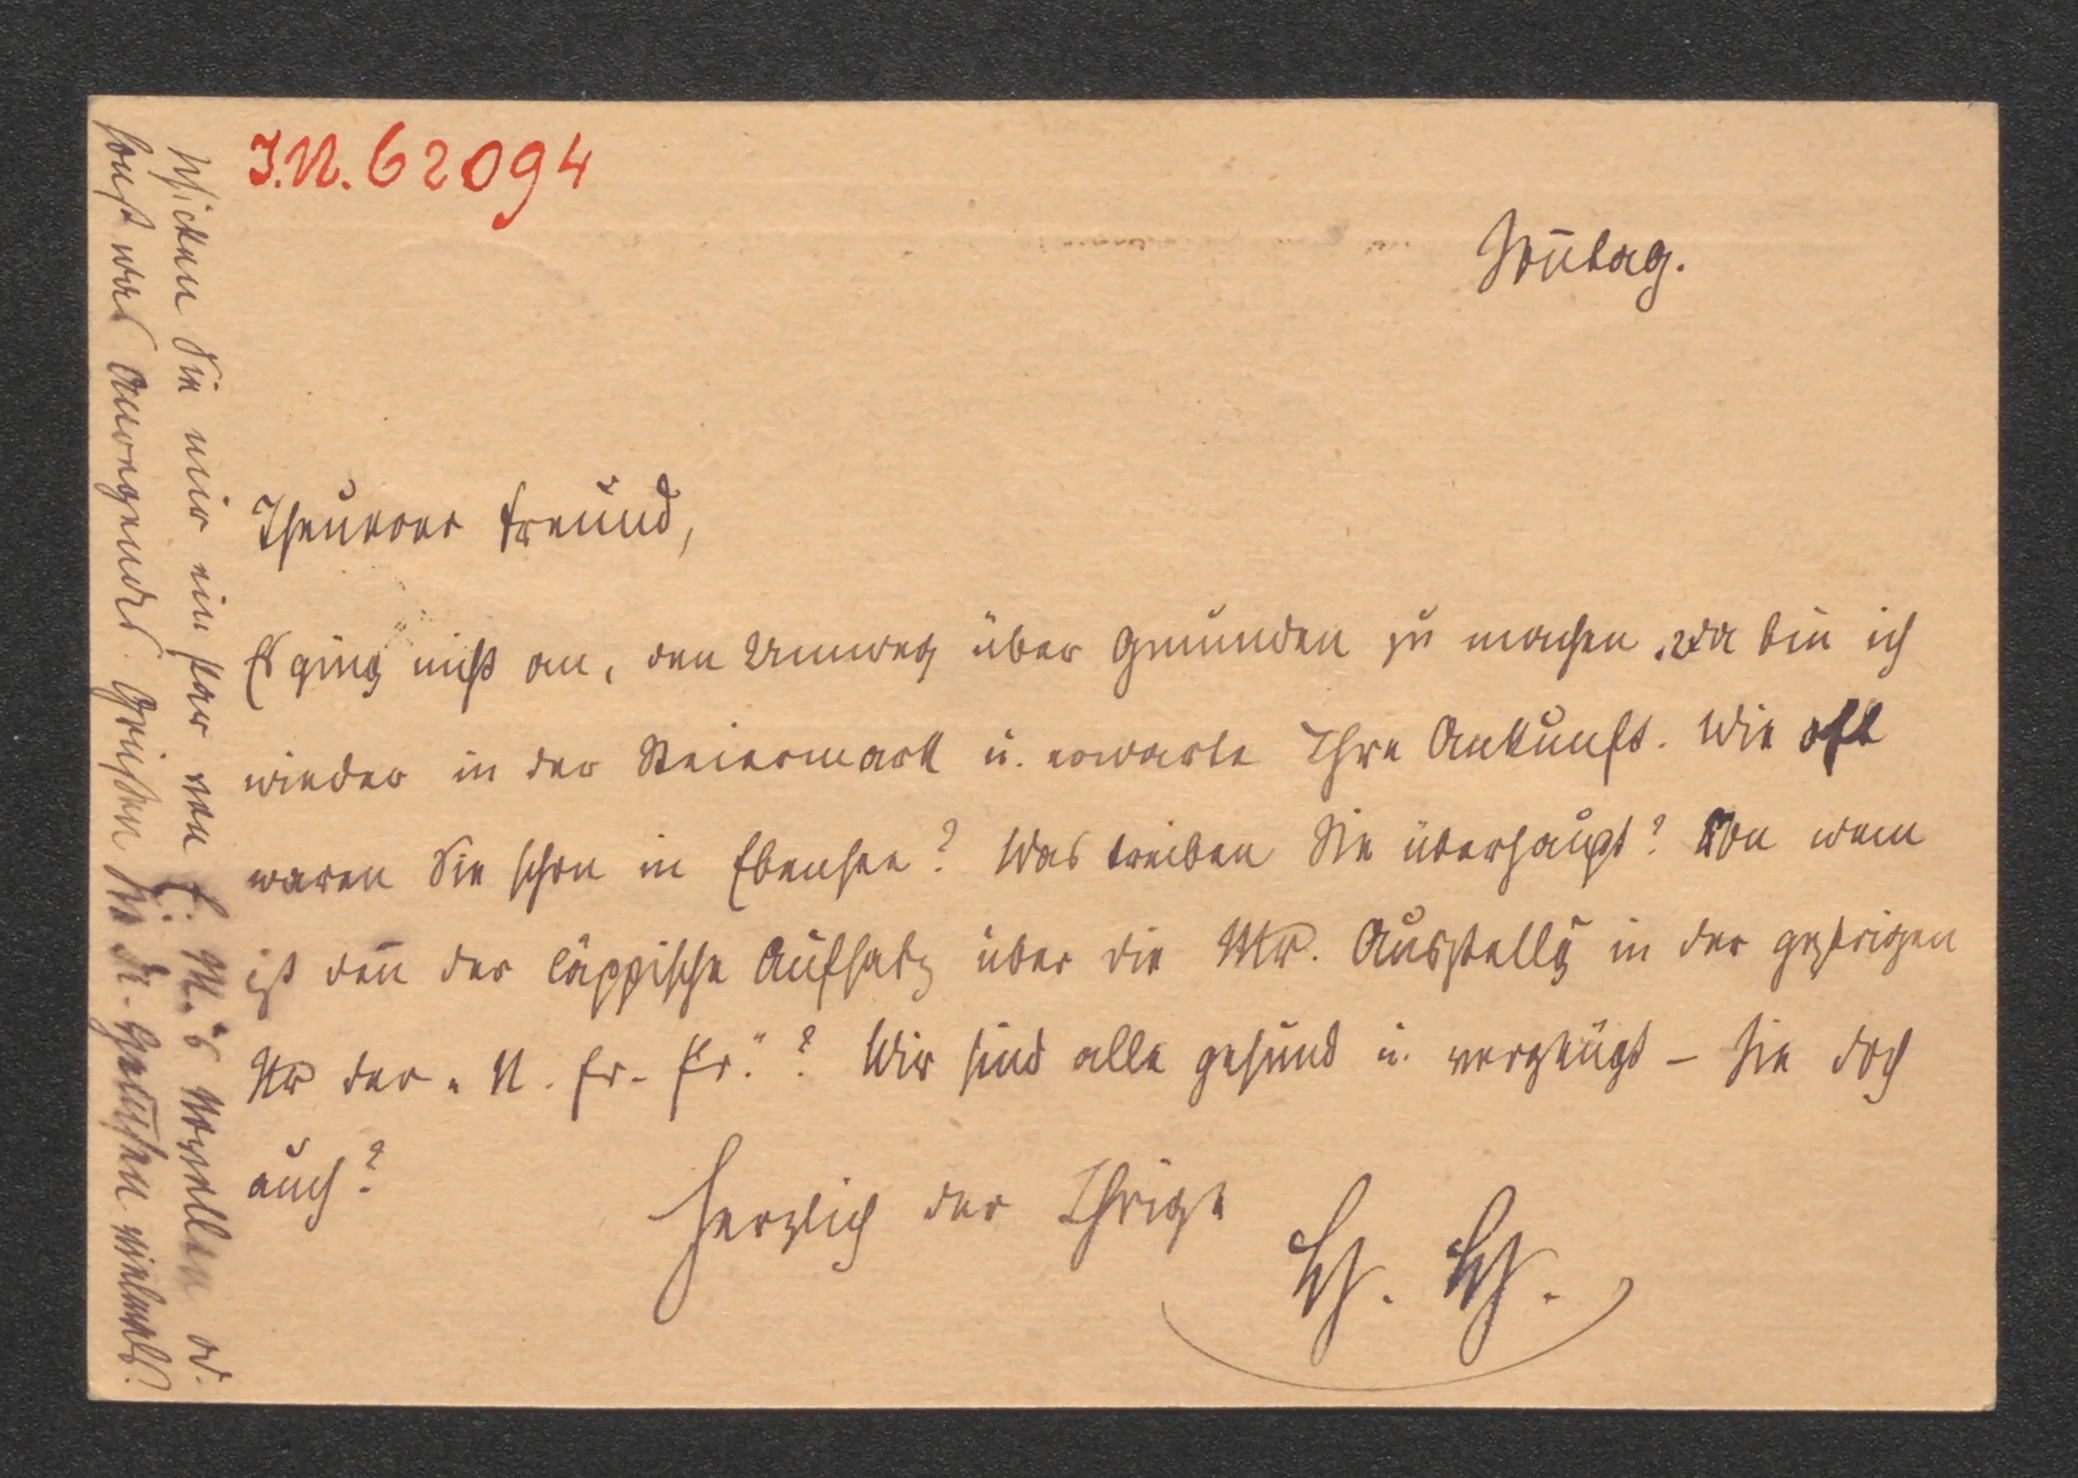 I.N. 62094
Sontag.
Theurer Freund,
Es ging nicht an, den Umweg über Gmunden zu machen. Da bin ich
wieder in der Steiermark u. erwarte Ihre Ankunft. Wie oft
waren Sie schon in Ebensee? Was treiben Sie überhaupt? Von wem
ist den der läppische Aufsatz über die Mk. Ausstellg in der gestrigen
Nr der „N. Fr. Pr."? Wir sind alle gesund u. vergnügt – Sie doch
auch?
Herzlich der Ihrige
Schicken Sie mir ein par von F. M.'s Novellen od.
sonst was Anregendes. Grüßen Sie die vielmals!